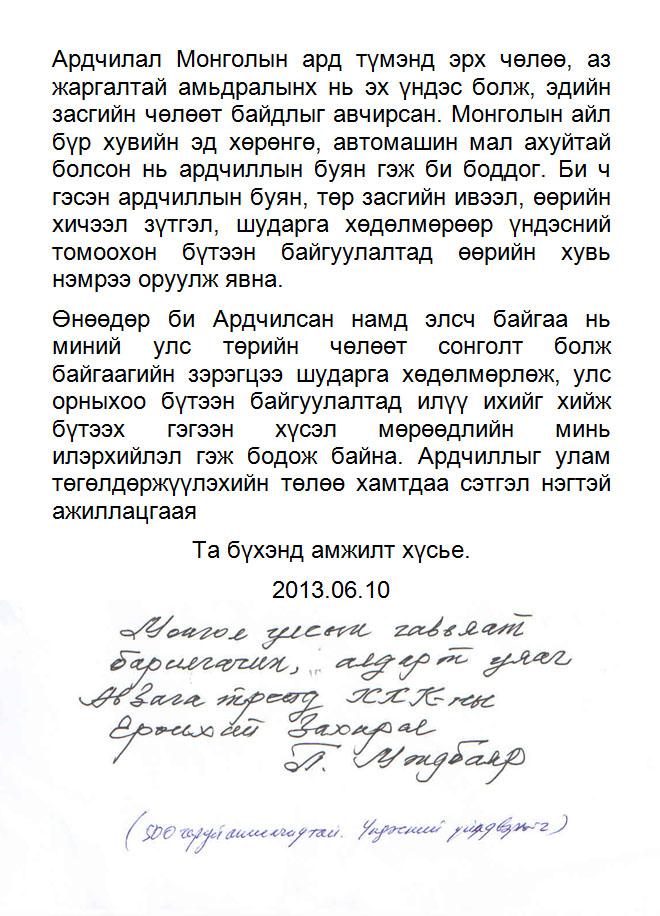 Ардчилал Монголын ард түмэнд эрх чөлөө, аз
жаргалтай амьдралынх нь эх үндэс болж, эдийн
засгийн чөлөөт байдлыг авчирсан. Монголын айл
бүр хувийн эд хөрөнгө, автомашин мал ахуйтай
болсон нь ардчиллын буян гэж би боддог. Би ч
гэсэн ардчиллын буян, төр засгийн ивээл, өөрийн
хичээл зүтгэл, шударга хөдөлмөрөөр үндэсний
томоохон бүтээн байгуулалтад өөрийн хувь
нэмрээ оруулж явна.
Өнөөдөр би Ардчилсан намд элсч байгаа нь
миний улс төрийн чөлөөт сонголт болж
байгаагийн зэрэгцээ шударга хөдөлмөрлөж, улс
орныхоо бүтээн байгуулалтад илүү ихийг хийж
бүтээх гэгээн хүсэл мөрөөдлийн минь
илэрхийлэл гэж бодож байна. Ардчиллыг улам
төгөлдөржүүлэхийн төлөө хамтдаа сэтгэл нэгтэй
ажиллацгаая
Та бүхэнд амжилт хүсье.
2013.06.10
Монгол улсын гавьяат
барилгачин, алдарт уяач
ХХК-ны
Ерөнхий Захирал
(500 гаруй ажилчидтай. Үндэсний үйлдвэрлэгч)